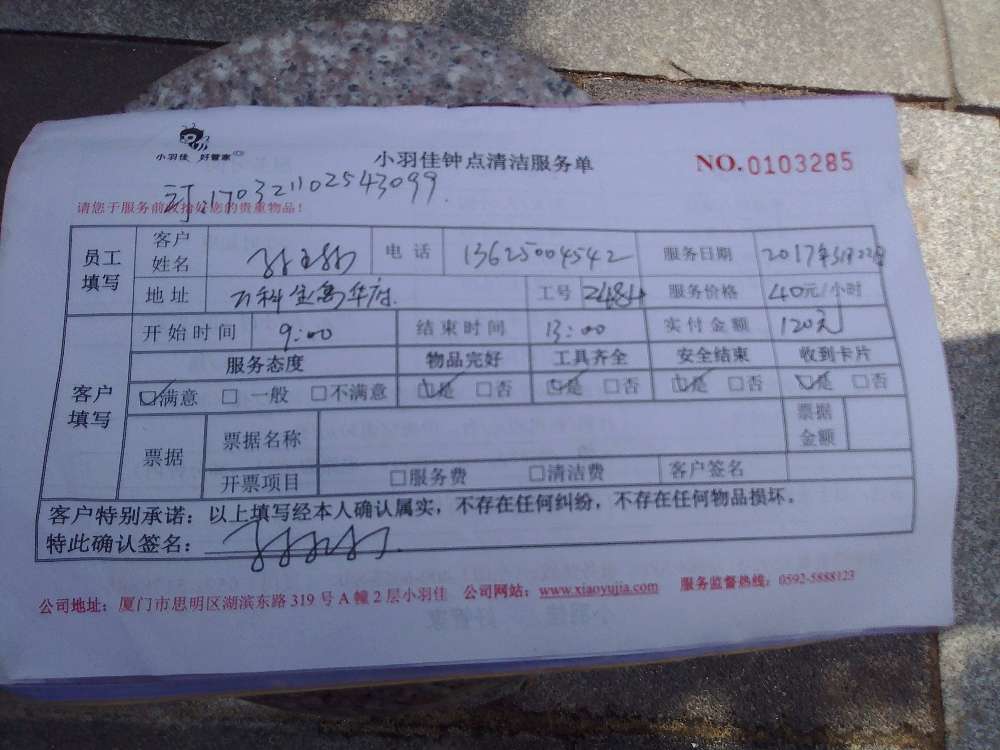 小羽佳 好管家
小羽佳钟点清洁服务单
NO.0103285
订:170321102543099
请您于服务前收拾好您的贵重物品!
员工填写 客户姓名 电话 13625004542 服务日期 2017年3月22日
地址 万科金域华府 工号 2484 服务价格 40元/小时
客户填写 开始时间 9:00 结束时间 13:00 实付金额 120元
服务态度 物品完好 工具齐全 安全结束 收到卡片
☑满意 □一般 □不满意 ☑是 □否 ☑是 □否 ☑是 □否 ☑是 □否
票据 票据名称 票据金额
开票项目 □服务费 □清洁费 客户签名
客户特别承诺:以上填写经本人确认属实,不存在任何纠纷,不存在任何物品损坏。
特此确认签名:
公司地址:厦门市思明区湖滨东路319号A幢2层小羽佳 公司网站:www.xiaoyujia.com 服务监督热线:0592-5888123